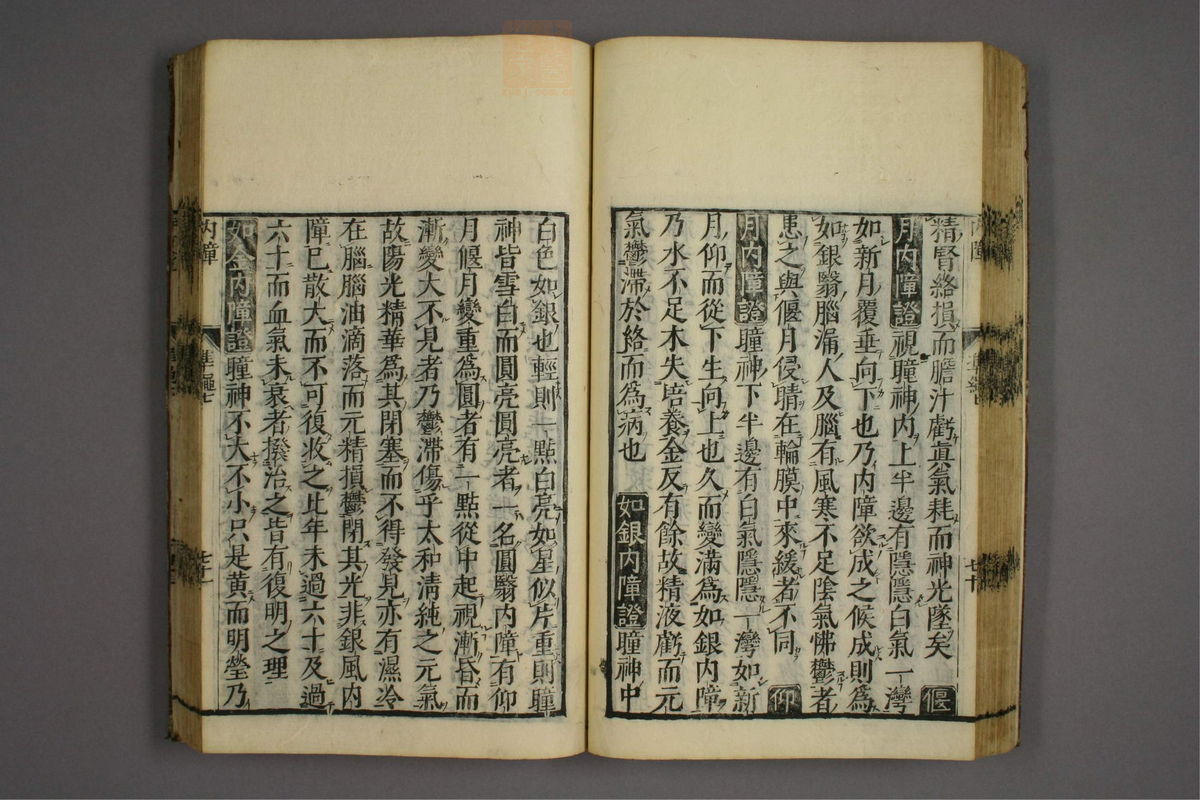 精腎絡損而膽汁虧眞氣耗而神光墜矣 偃
月內障證瞳神內上半邊有隱隱白氣一灣
如新月覆垂向下也乃內障欲成之候成則爲
如銀翳腦漏人及腦有風寒不足陰氣怫鬱者
患之與偃月侵睛在輪膜中來緩者不同 仰
月內障證瞳神下半邊有白氣隱隱一灣如新
月仰而從下生向上也久而變滿爲如銀內障
乃水不足木失培養金反有餘故精液虧而元
氣鬱滯於絡而爲病也 如銀內障證瞳神中
白色如銀也輕則一點白亮如星似片重則瞳
神皆雪白而圓亮圓亮者一名圓翳內障有仰
月偃月變重爲圓者有一點從中起視漸昏而
漸變大不見者乃鬱滯傷乎太和淸純之元氣
故陽光精華爲其閉塞而不得發見亦有濕冷
在腦腦油滴落而元精損鬱閉其光非銀風內
障已散大而不可復收之比年未過六十及過
六十而血氣未衰者撥治之皆有復明之理
如金內障證瞳神不大不小只是黃而明瑩乃
內障
七十一